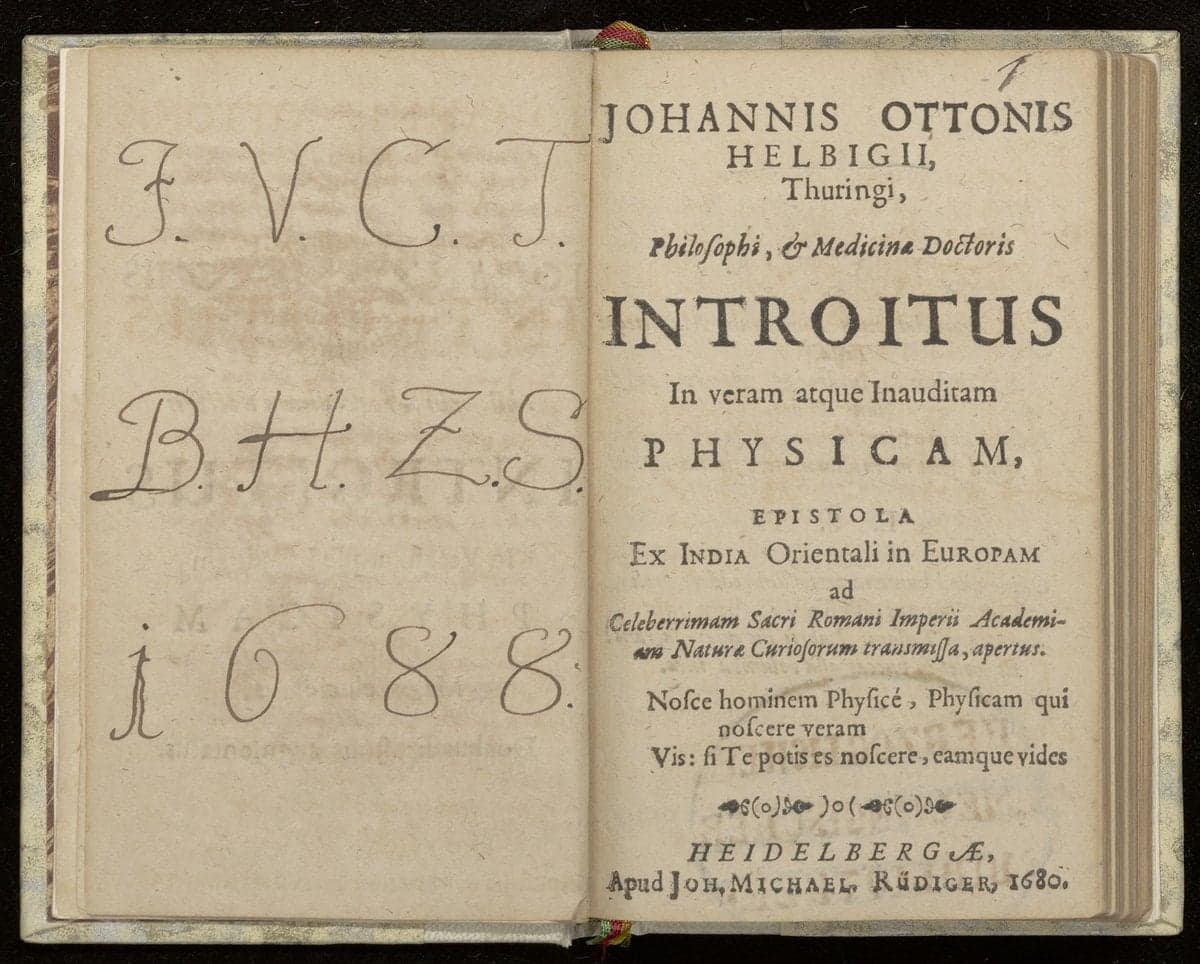 J. V. C. T.
B. H. Z. S.
1688.
1
JOHANNIS OTTONIS
HELBIGII,
Thuringi,
Philoſophi, & Medicinæ Doctoris
INTROITUS
In veram atque Inauditam
PHYSICAM,
EPISTOLA
Ex INDIA Orientali in EUROPAM
ad
Celeberrimam Sacri Romani Imperii Academi-
am Naturæ Curioſorum transmiſſa, apertus.
Noſce hominem Phyſicé, Phyſicam qui
noſcere veram
Vis: ſi Te potis es noſcere, eamque vides
HEIDELBERGÆ,
Apud JOH. MICHAEL. RŰDIGER, 1680.